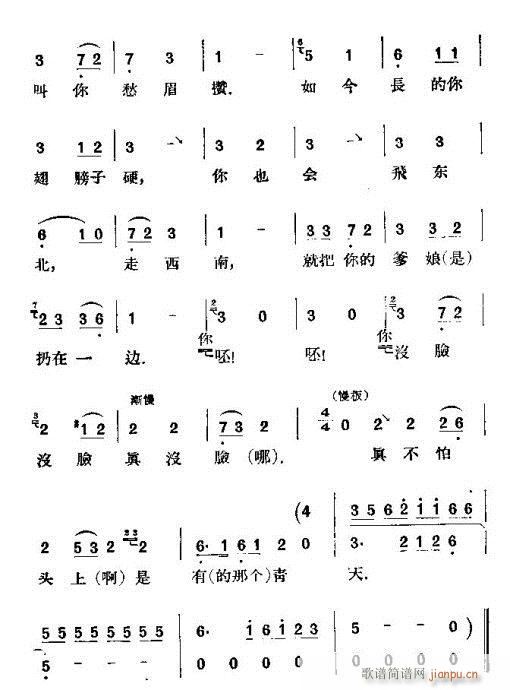 3 7 2 7 3 1 - 6 5 1 6 1 1
叫你愁眉攢. 如今長的你
3 1 2 3 - 3 2 3 - 3 2
翅膀子硬, 你也会 飛东
6 1 0 7 2 3 1 - 3 3 7 2 3 3 2
北, 走西南, 就把你的爹娘(是)
7 2 3 3 6 1 - 2 3 0 3 0 2 3 7 2
扔在一边. 你呸! 呸! 你沒臉
漸慢 (慢板)
3 2 #1 2 2 2 7 3 2 4/4 0 2 2 6
沒臉眞沒臉(哪). 眞不怕
(4 3 5 6 2 1 1 6 6
2 5 3 2 2 3 2 6· 1 6 1 2 0 3· 1 2 6
头上(啊)是有(的那个)青天.
5 5 5 5 5 5 5 5 6· 1 6 1 2 3 5 - - 0)
5 - - - 0 0 0 0 0 0 0 0
歌谱简谱网
jianpu.cn